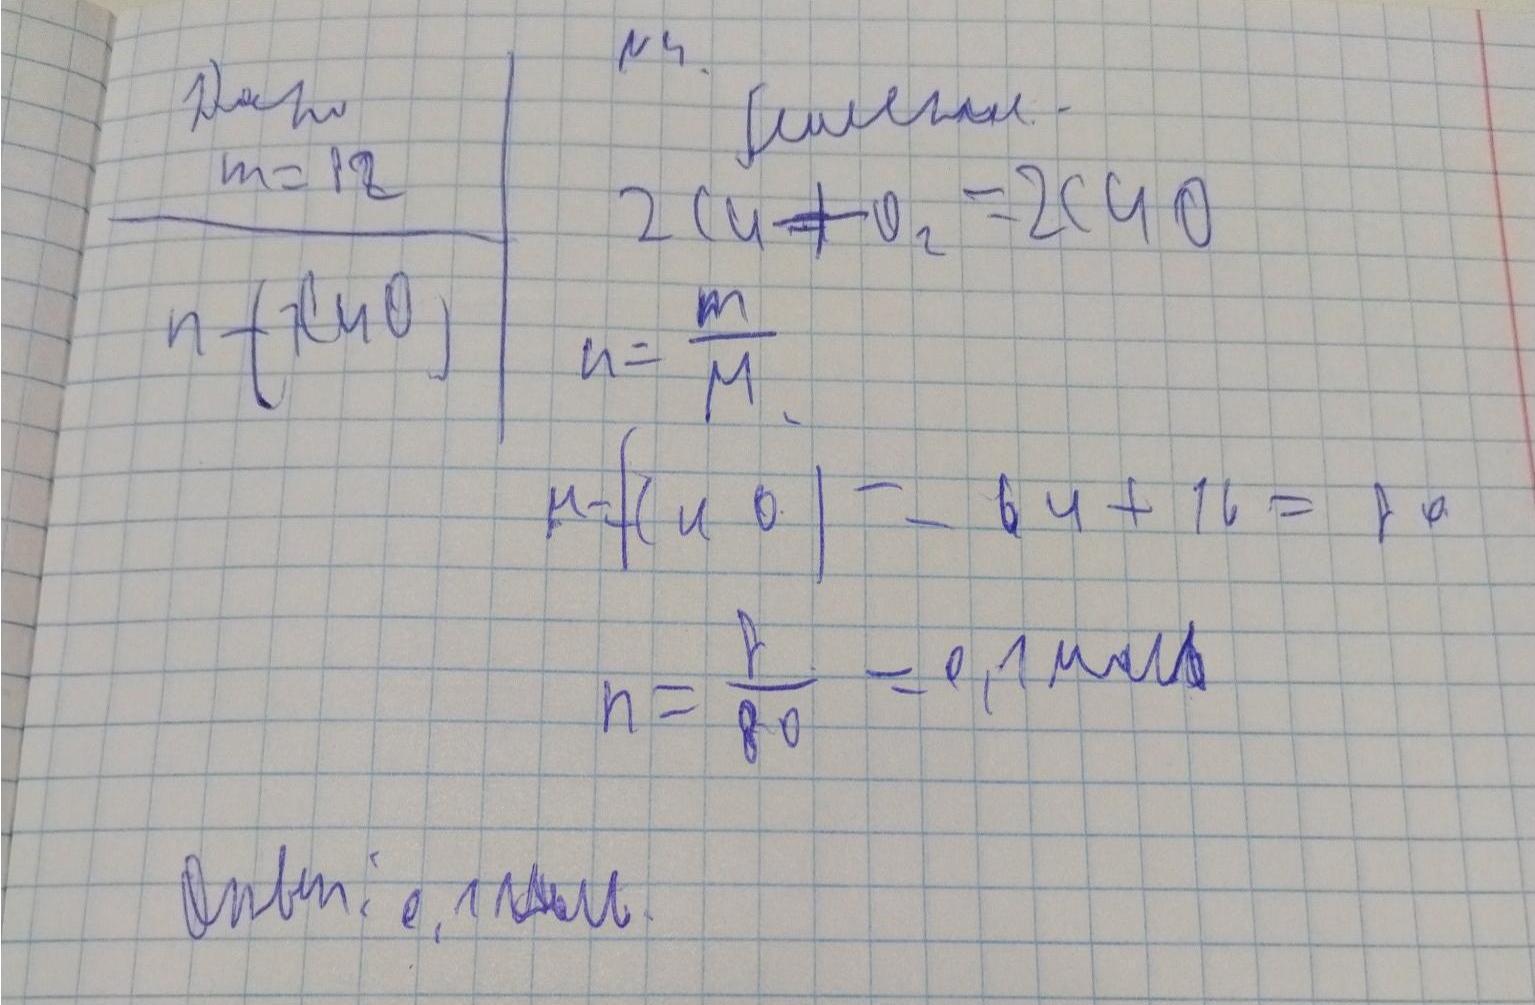 №4.
Дано
m = 8г
n - (CuO)
Решение.
2Cu + O₂ = 2CuO
n = m/M
M = (CuO) = 64 + 16 = 80
n = 8/80 = 0,1 моль
Ответ: 0,1 моль.